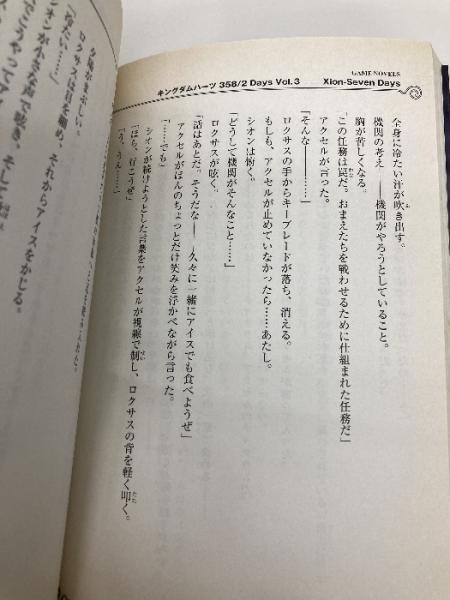 GAME NOVELS
キングダムハーツ 358/2 Days Vol.3 Xion-Seven Days
全身に冷たい汗が吹き出す。
機関の考え――機関がやろうとしていること。
胸が苦しくなる。
「この任務は罠だ。おまえたちを戦わせるために仕組まれた任務だ」
アクセルが言った。
「そんな――……」
ロクサスの手からキーブレードが落ち、消える。
もしも、アクセルが止めていなかったら……あたし。
シオンは俯く。
「どうして機関がそんなこと……」
ロクサスが呟く。
「話はあとだ。そうだな――久々に一緒にアイスでも食べようぜ」
アクセルがほんのちょっとだけ笑みを浮かべながら言った。
「……でも」
シオンが続けようとした言葉をアクセルが視線で制し、ロクサスの背を軽く叩く。
「ほら、行こうぜ」
「う、うん……」
ロクサスは目を細め、それからアイスをかじる。
「冷たい……」
シオンが小さな声で呟き、そして